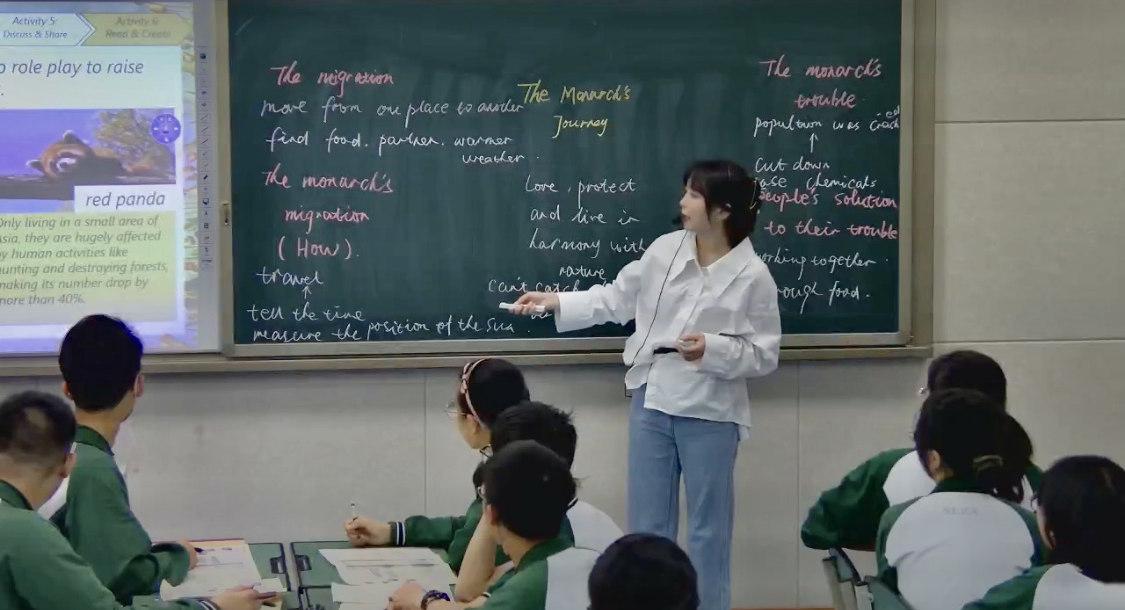 Activity 5:
Discuss & Share
Activity 6:
Read & Create
o role play to raise
red panda
Only living in a small area of
Asia, they are hugely affected
by human activities like
hunting and destroying forests,
making its number drop by
more than 40%.
The migration
move from one place to another
find food. partner. warmer
weather.
The monarch's
migration
(How).
travel
↑
tell the time
measure the position of the sun.
The Monarch's
Journey
Love, protect
and live in
harmony with
nature
can't catch
The monarch's
trouble
population was
↑
cut down
chemicals
people's solution
to their trouble
working together.
food.